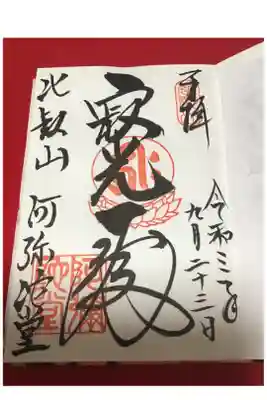 奉拝
令和三年
九月二十三日
寂光殿
比叡山 阿弥陀堂